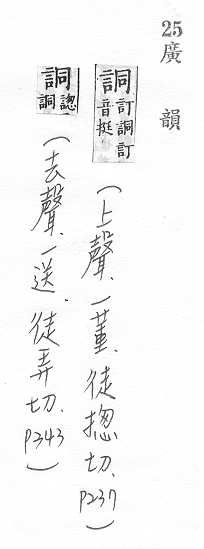 25廣韻
詷訂詷訂音挺(上聲、一董、徒揔切、P237)
詷𧩦詷(去聲、一送、徒弄切、P343)